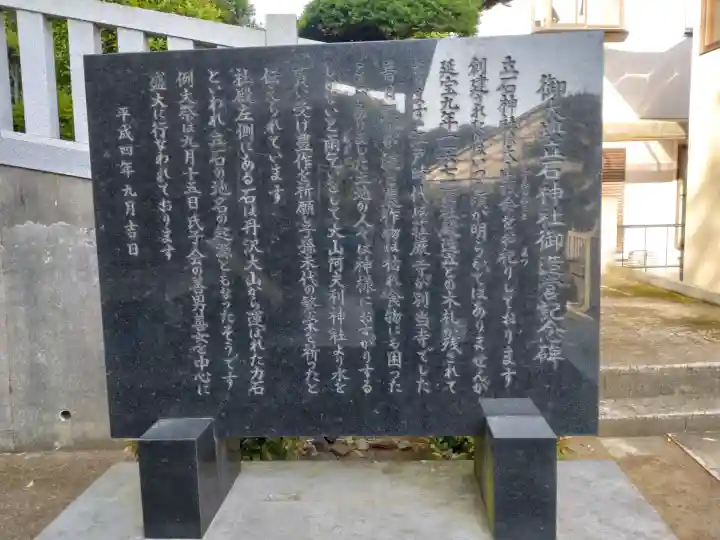 御大典立石神社御造営記念碑
立石神社は大山 を奉祀りしております
まつ
創建されたのはいつ 明らかではありませんが
延宝九年 造立との木札が残されて
江戸時代は荘厳寺が別当寺でした
昔日 農作物は枯れ食物にも困った
の人々は神様におすがりする
しかないと雨乞いをして大山阿夫利神社より水を
受け豊作を祈願し子孫末代の繁栄を祈ったと
伝えられています
社殿左側にある一石は丹沢大山から運ばれた力石
といわれ立石の地名の起源ともなったそうです
例大祭は九月十五日氏子会の善男善女を中心に
盛大に行なわれております
平成四年九月吉日